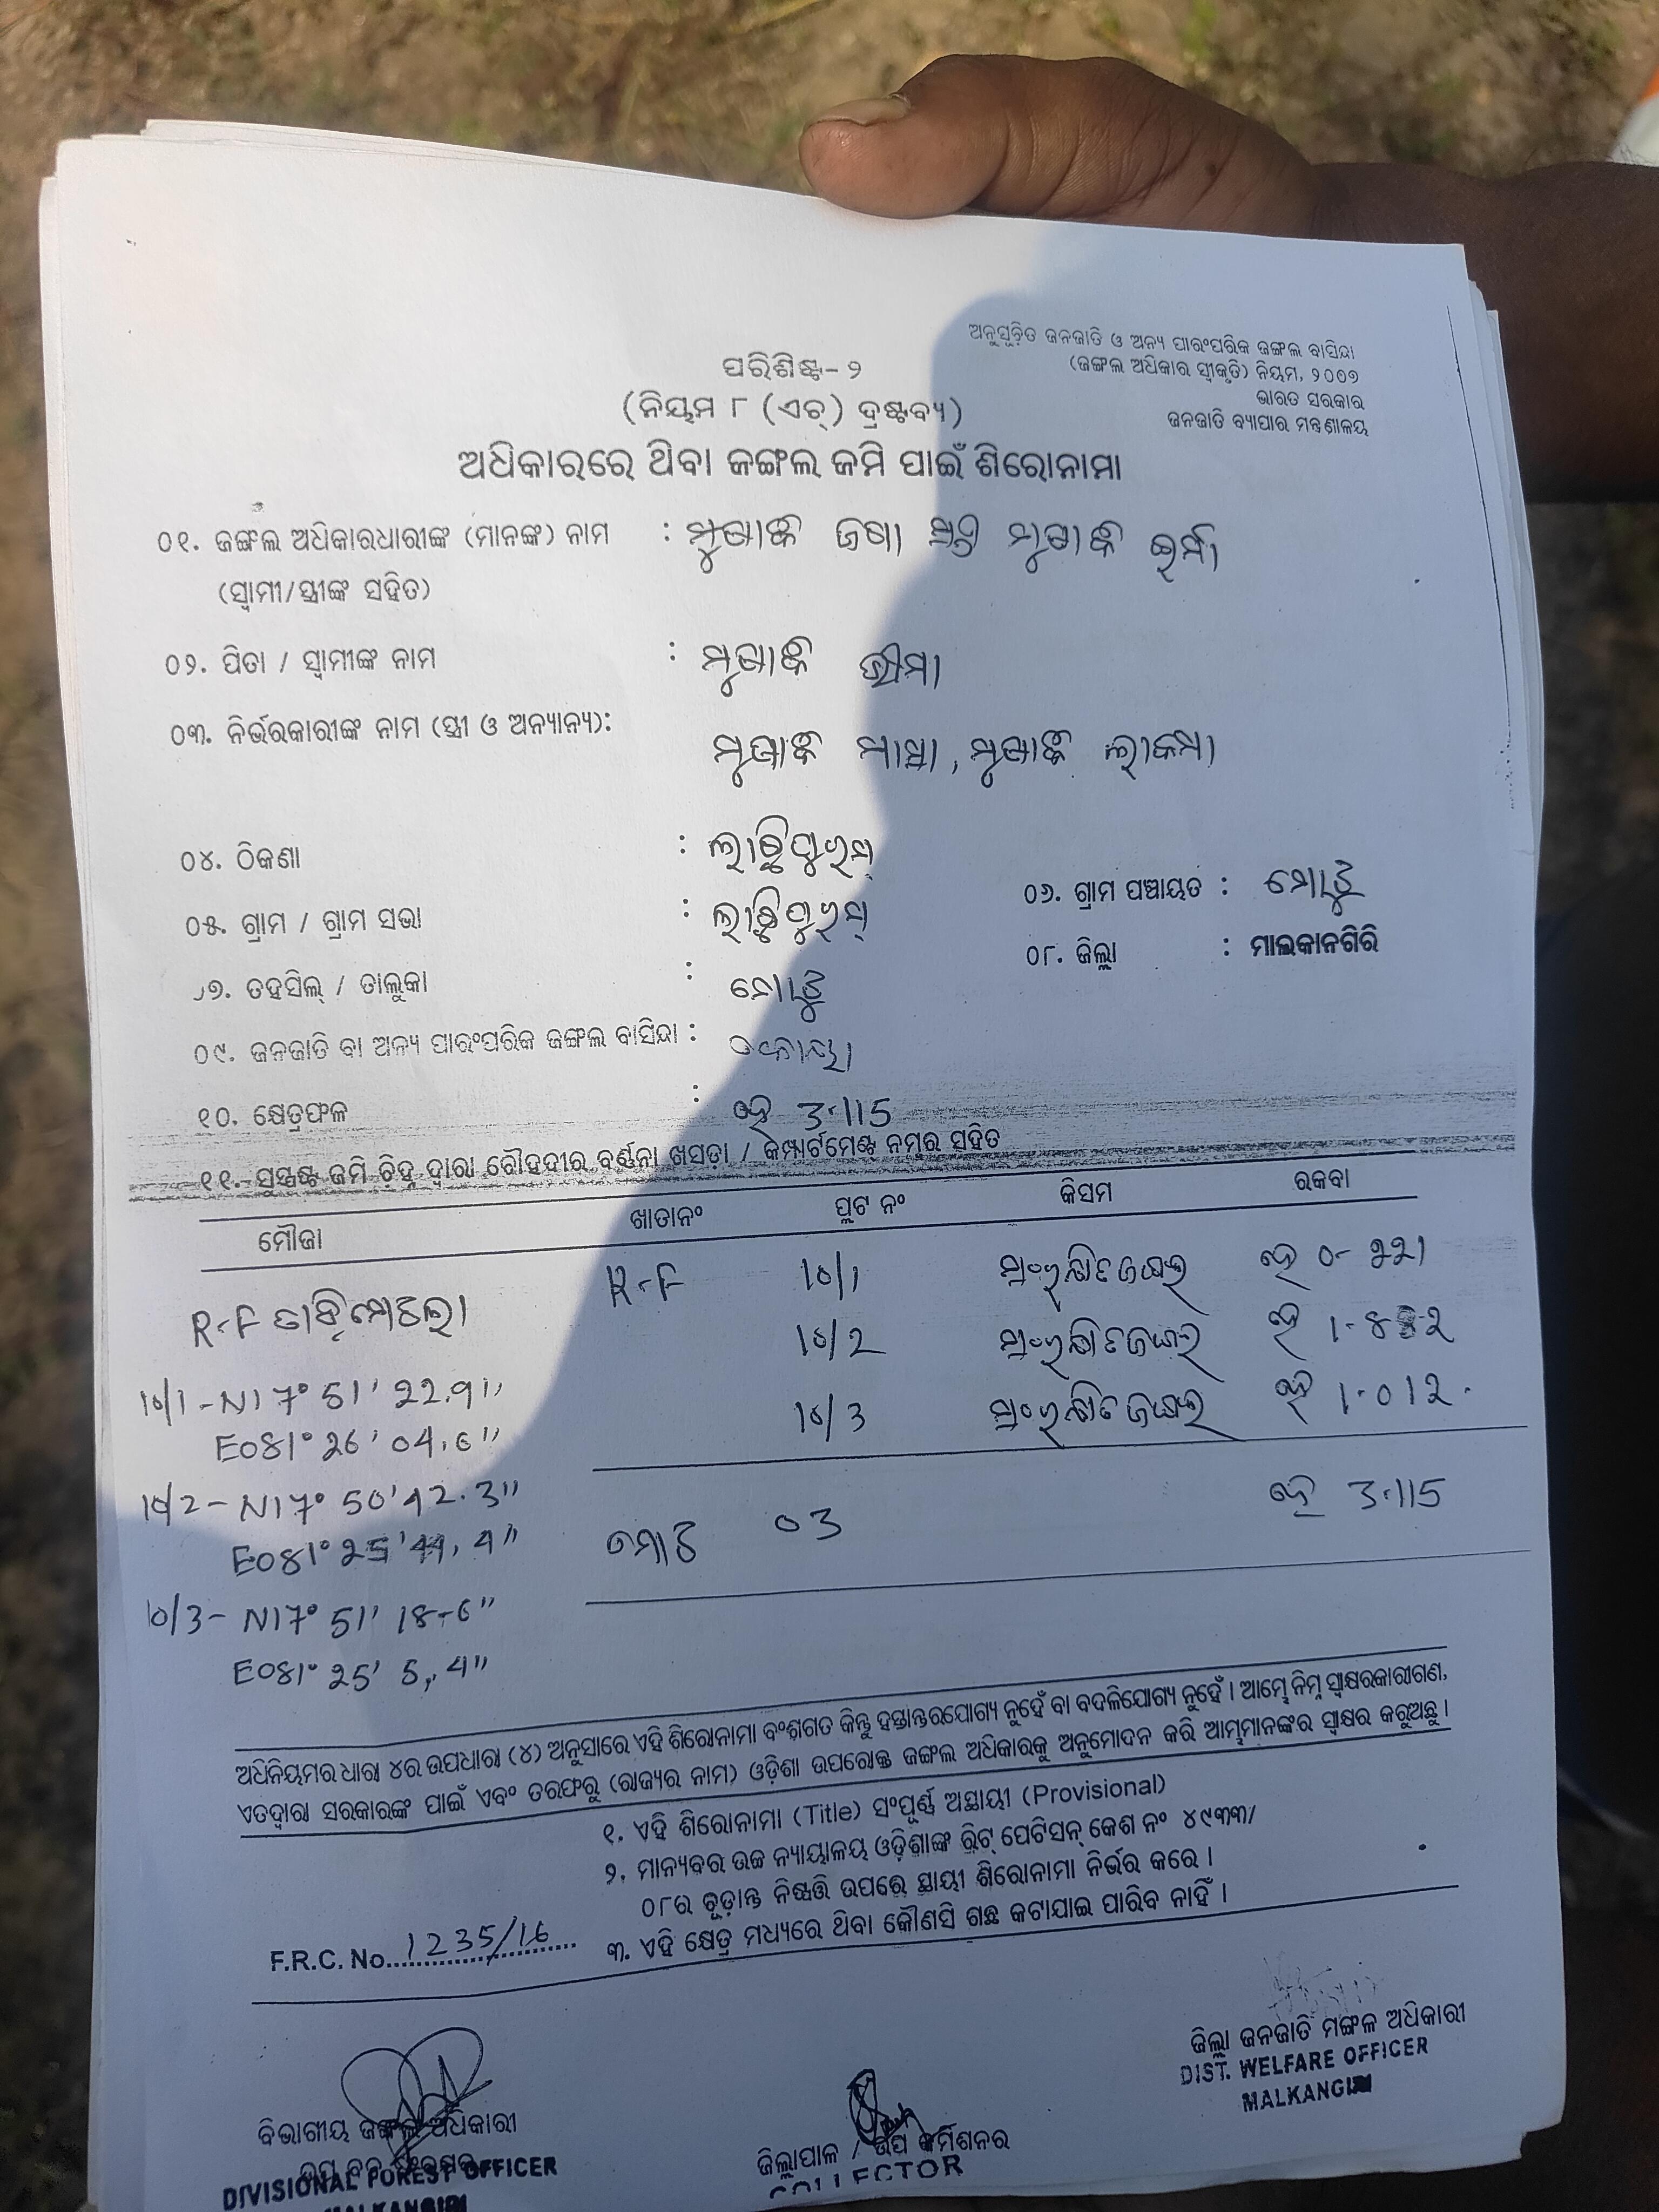 ଅନୁସୂଚିତ ଜନଜାତି ଓ ଅନ୍ୟ ପାରଂପରିକ ଜଙ୍ଗଲ ବାସିନ୍ଦା
(ଜଙ୍ଗଲ ଅଧିକାର ସ୍ୱୀକୃତି) ନିୟମ, ୨୦୦୭
ଭାରତ ସରକାର
ଜନଜାତି ବ୍ୟାପାର ମନ୍ତ୍ରଣାଳୟ
ପରିଶିଷ୍ଟ- ୨
(ନିୟମ ୮ (ଏଚ୍) ଦ୍ରଷ୍ଟବ୍ୟ)
ଅଧିକାରରେ ଥିବା ଜଙ୍ଗଲ ଜମି ପାଇଁ ଶିରୋନାମା
୦୧. ଜଙ୍ଗଲ ଅଧିକାରଧାରୀଙ୍କ (ମାନଙ୍କ) ନାମ :
(ସ୍ୱାମୀ/ସ୍ତ୍ରୀଙ୍କ ସହିତ)
୦୨. ପିତା / ସ୍ୱାମୀଙ୍କ ନାମ : ଭୀମା
୦୩. ନିର୍ଭରକାରୀଙ୍କ ନାମ (ସ୍ତ୍ରୀ ଓ ଅନ୍ୟାନ୍ୟ):
୦୪. ଠିକଣା :
୦୫. ଗ୍ରାମ / ଗ୍ରାମ ସଭା :
୦୬. ଗ୍ରାମ ପଞ୍ଚାୟତ : ମୋଟୁ
୭. ତହସିଲ୍ / ତାଲୁକା : ମୋଟୁ
୦୮. ଜିଲ୍ଲା : ମାଲକାନଗିରି
୦୯. ଜନଜାତି ବା ଅନ୍ୟ ପାରଂପରିକ ଜଙ୍ଗଲ ବାସିନ୍ଦା : କୋୟା
୧୦. କ୍ଷେତ୍ରଫଳ : ହେ 3.115
୧୧. ସୁସ୍ପଷ୍ଟ ଜମି ଚିହ୍ନ ଦ୍ୱାରା ଚୌହଦୀର ବର୍ଣ୍ଣନା ଖସଡ଼ା / କମ୍ପାର୍ଟମେଣ୍ଟ ନମ୍ବର ସହିତ
ମୌଜା ଖାତାନଂ ପ୍ଲଟ ନଂ କିସମ ରକବା
R.F R-F 10/1 ସଂରକ୍ଷିତ ଜଙ୍ଗଲ ହେ 0-221
10/2 ସଂରକ୍ଷିତ ଜଙ୍ଗଲ ହେ
10/3 ସଂରକ୍ଷିତ ଜଙ୍ଗଲ ହେ 1.012.
10/1 - N17° 51' 22.9"
E081° 26' 04.6"
10/2 - N17° 50' 42.3"
E081° 25'
10/3 - N17° 51' 18-6"
E081° 25'
ମୋଟ 03 ହେ 3.115
ଅଧିନିୟମର ଧାରା ୪ର ଉପଧାରା (୪) ଅନୁସାରେ ଏହି ଶିରୋନାମା ବଂଶଗତ କିନ୍ତୁ ହସ୍ତାନ୍ତରଯୋଗ୍ୟ ନୁହେଁ ବା ବଦଳିଯୋଗ୍ୟ ନୁହେଁ । ଆମ୍ଭେ ନିମ୍ନ ସ୍ୱାକ୍ଷରକାରୀଗଣ,
ଏତଦ୍ୱାରା ସରକାରଙ୍କ ପାଇଁ ଏବଂ ତରଫରୁ (ରାଜ୍ୟର ନାମ) ଓଡ଼ିଶା ଉପରୋକ୍ତ ଜଙ୍ଗଲ ଅଧିକାରକୁ ଅନୁମୋଦନ କରି ଆମ୍ଭମାନଙ୍କର ସ୍ୱାକ୍ଷର କରୁଅଛୁ ।
୧. ଏହି ଶିରୋନାମା (Title) ସଂପୂର୍ଣ୍ଣ ଅସ୍ଥାୟୀ (Provisional)
୨. ମାନ୍ୟବର ଉଚ୍ଚ ନ୍ୟାୟାଳୟ ଓଡ଼ିଶାଙ୍କ ରିଟ୍ ପେଟିସନ୍ କେଶ ନଂ ୪୯୩୩/
୦୮ର ଚୂଡ଼ାନ୍ତ ନିଷ୍ପତ୍ତି ଉପରେ ସ୍ଥାୟୀ ଶିରୋନାମା ନିର୍ଭର କରେ ।
୩. ଏହି କ୍ଷେତ୍ର ମଧ୍ୟରେ ଥିବା କୌଣସି ଗଛ କଟାଯାଇ ପାରିବ ନାହିଁ ।
F.R.C. No. 1235/16
ଜିଲ୍ଲା ଜନଜାତି ମଙ୍ଗଳ ଅଧିକାରୀ
DIST. WELFARE OFFICER
MALKANGIRI
ବିଭାଗୀୟ ଜଙ୍ଗଲ ଅଧିକାରୀ
DIVISIONAL FOREST OFFICER
MALKANGIRI
ଜିଲ୍ଲାପାଳ / ଉପ କମିଶନର
COLLECTOR